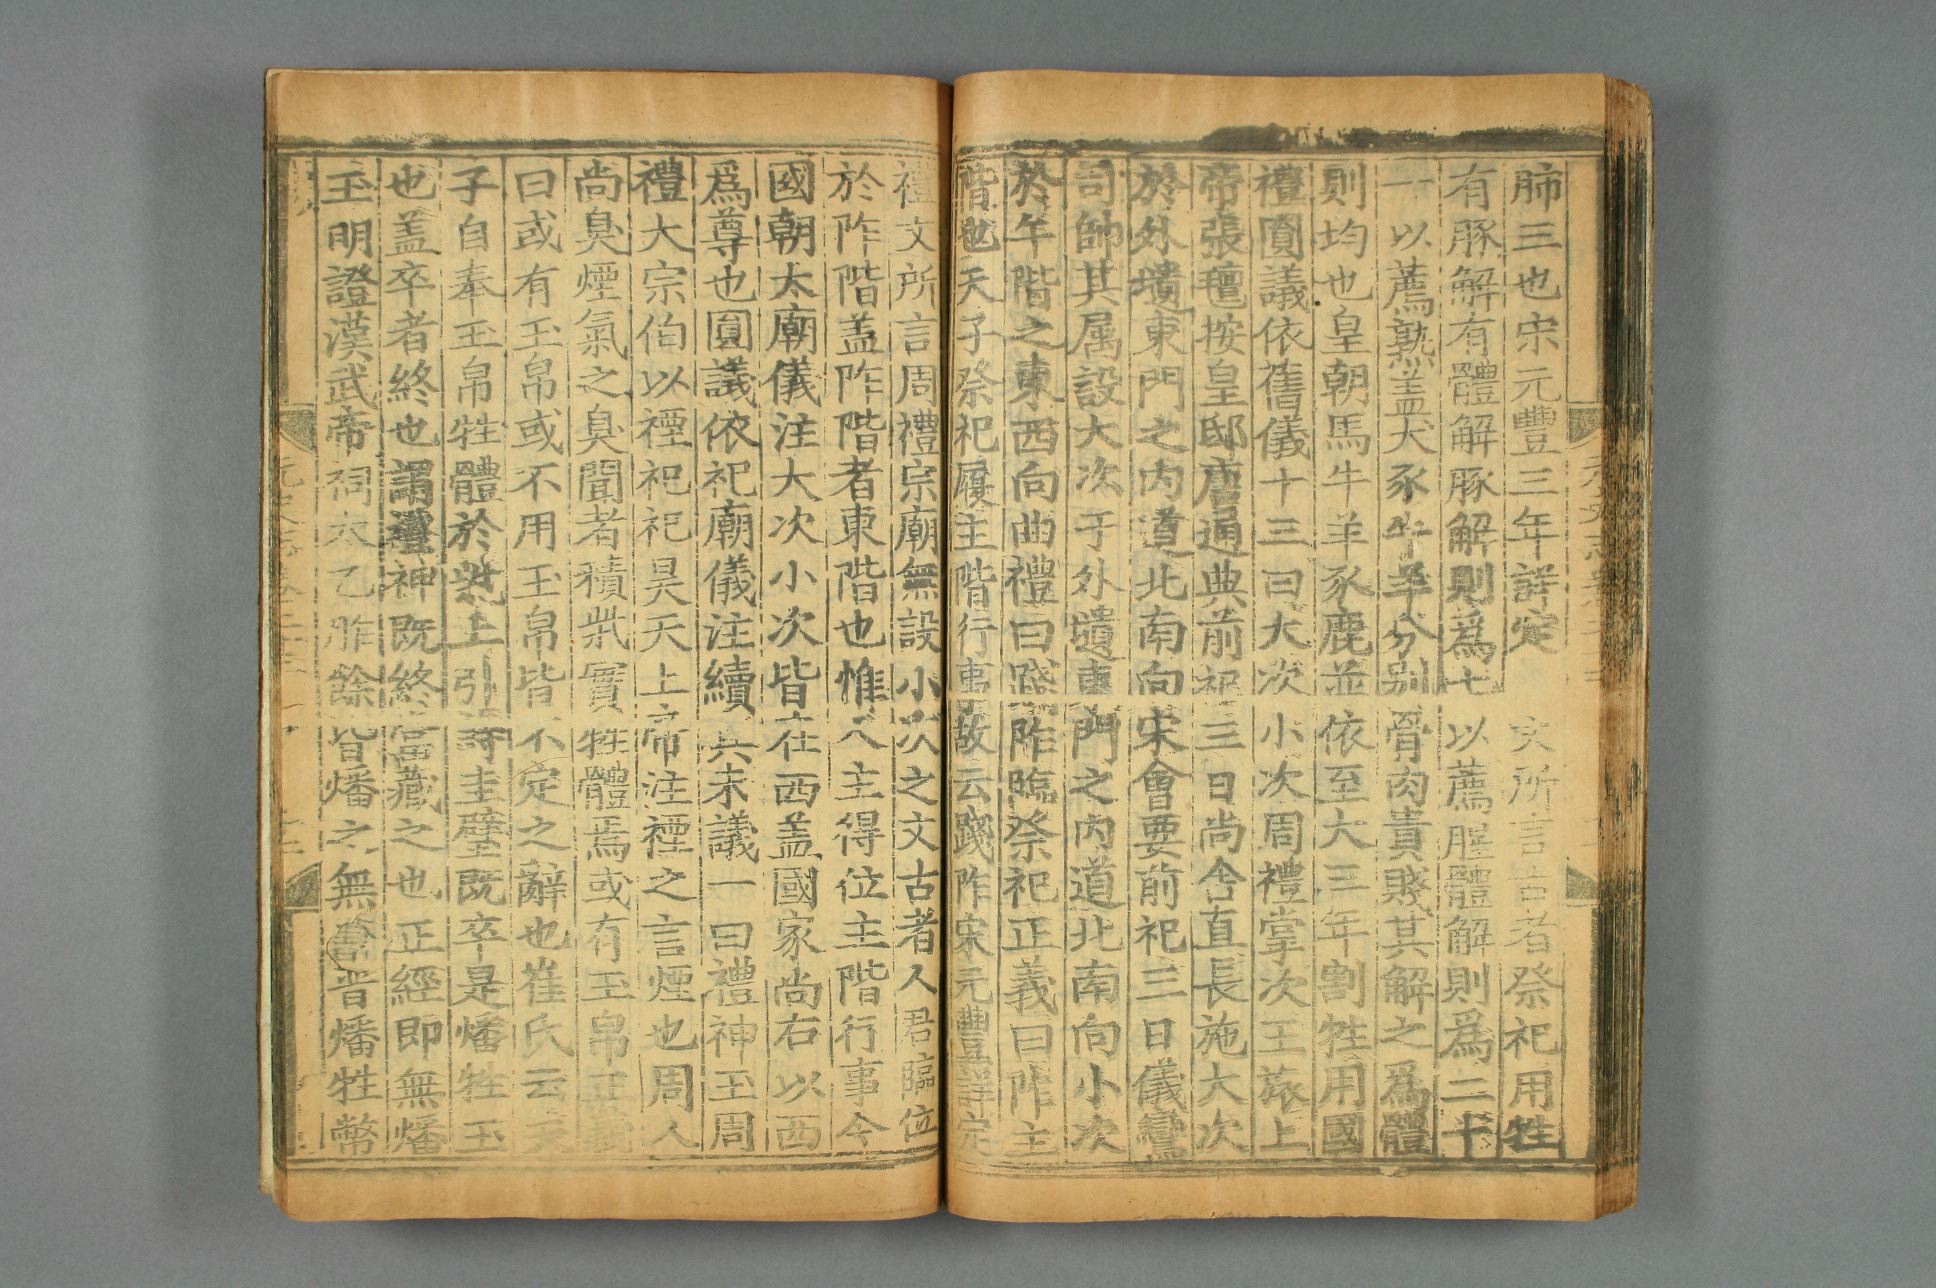 肺三也宋元豐三年詳定 文所言古者祭祀用牲
有豚解有體解豚解則爲七 以薦腥體解則爲二十
一以薦熟盖犬豕牛羊分别骨肉貴賤其解之爲體
則均也皇朝馬牛羊豕鹿並依至大三年割牲用國
禮圓議依舊儀十三曰大次小次周禮掌次王旅上
帝張氊按皇邸唐通典前祀三日尚舍直長施大次
於外壝東門之内道北南向宋會要前祀三日儀鸞
司帥其属設大次于外壝東門之内道北南向小次
於午階之東西向曲禮曰踐阼臨祭祀正義曰阼主
階也天子祭祀履主階行事故云踐阼宋元豐詳定
禮文所言周禮宗廟無設小次之文古者人君臨位
於阼階盖阼階者東階也惟人主得位主階行事今
國朝太廟儀注大次小次皆在西盖國家尚右以西
爲尊也圓議依祀廟儀注續具末議一曰禮神玉周
禮大宗伯以禋祀祀昊天上帝注禋之言煙也周人
尚臭煙氣之臭聞者積柴實牲體焉或有玉帛正義
曰或有玉帛或不用玉帛皆不定之辭也崔氏云天
子自奉玉帛牲體於柴上引詩圭璧既卒是燔牲玉
也盖卒者終也謂禮神既終當藏之也正經即無燔
玉明證漢武帝祠太乙胙餘皆燔之無玉晋燔牲幣